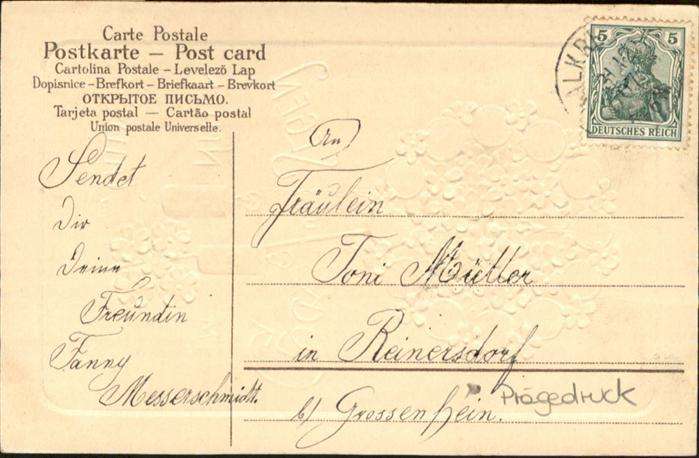 Carte Postale
Postkarte — Post card
Cartolina Postale – Levelező Lap
Dopisnice – Brefkort – Briefkaart – Brevkort
ОТКРЫТОЕ ПИСЬМО.
Tarjeta postal — Cartão postal
Union postale Universelle.
5 5
DEUTSCHES REICH
Sendet
Dir
Deine
Freundin
Fanny
Messerschmidt.
An
Fräulein
Toni Müller
in Reinersdorf
b/ Grossenhein.
Prägedruck